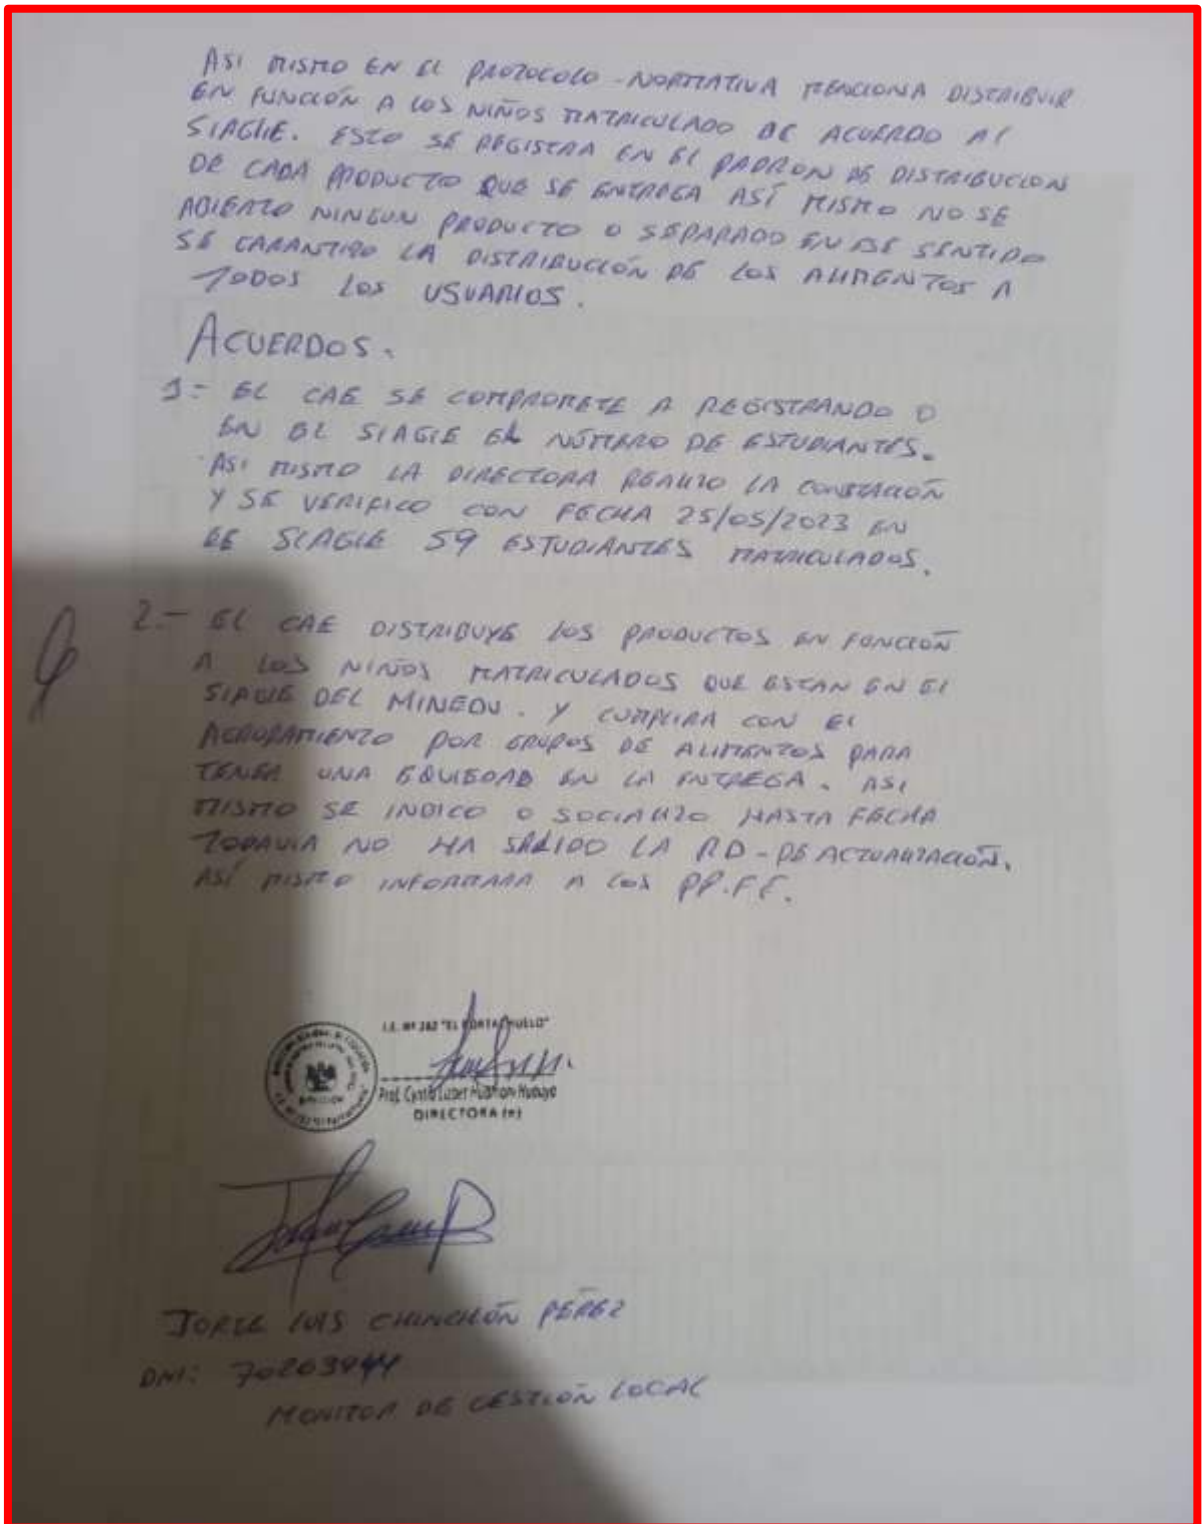 ASI MISMO EN EL PROTOCOLO - NORMATIVA MENCIONA DISTRIBUIR
EN FUNCIÓN A LOS NIÑOS MATRICULADO DE ACUERDO AL
SIAGIE. ESTO SE REGISTRA EN EL PADRON DE DISTRIBUCION
DE CADA PRODUCTO QUE SE ENTREGA ASÍ MISMO NO SE
ABIERTO NINGUN PRODUCTO O SEPARADO EN ESE SENTIDO
SE GARANTIZO LA DISTRIBUCIÓN DE LOS ALIMENTOS A
TODOS LOS USUARIOS.
ACUERDOS.
1 - EL CAE SE COMPROMETE A REGISTRANDO O
EN EL SIAGIE EL NÚMERO DE ESTUDIANTES.
ASI MISMO LA DIRECTORA REALIZO LA
Y SE VERIFICO CON FECHA 25/05/2023 EN
EE SIAGIE 59 ESTUDIANTES MATRICULADOS.
2.- EL CAE DISTRIBUYE LOS PRODUCTOS EN FUNCIÓN
A LOS NIÑOS MATRICULADOS QUE ESTAN EN EL
SIAGIE DEL MINEDU. Y CUMPLIRA CON EL
AGRUPAMIENTO POR GRUPOS DE ALIMENTOS PARA
TENER UNA EQUIEDAD EN LA ENTREGA. ASI
MISMO SE INDICO O SOCIALIZO HASTA FECHA
TODAVIA NO HA SALIDO LA RD - DE ACTUALIZACIÓN.
ASÍ MISMO INFORMARA A LOS PP.FF.
I.E. Nº 282 "EL PORTACHUELO"
Prof.
DIRECTORA (e)
JORGE LUIS CHINCHÓN PÉREZ
DNI: 70263944
MONITOR DE GESTIÓN LOCAL